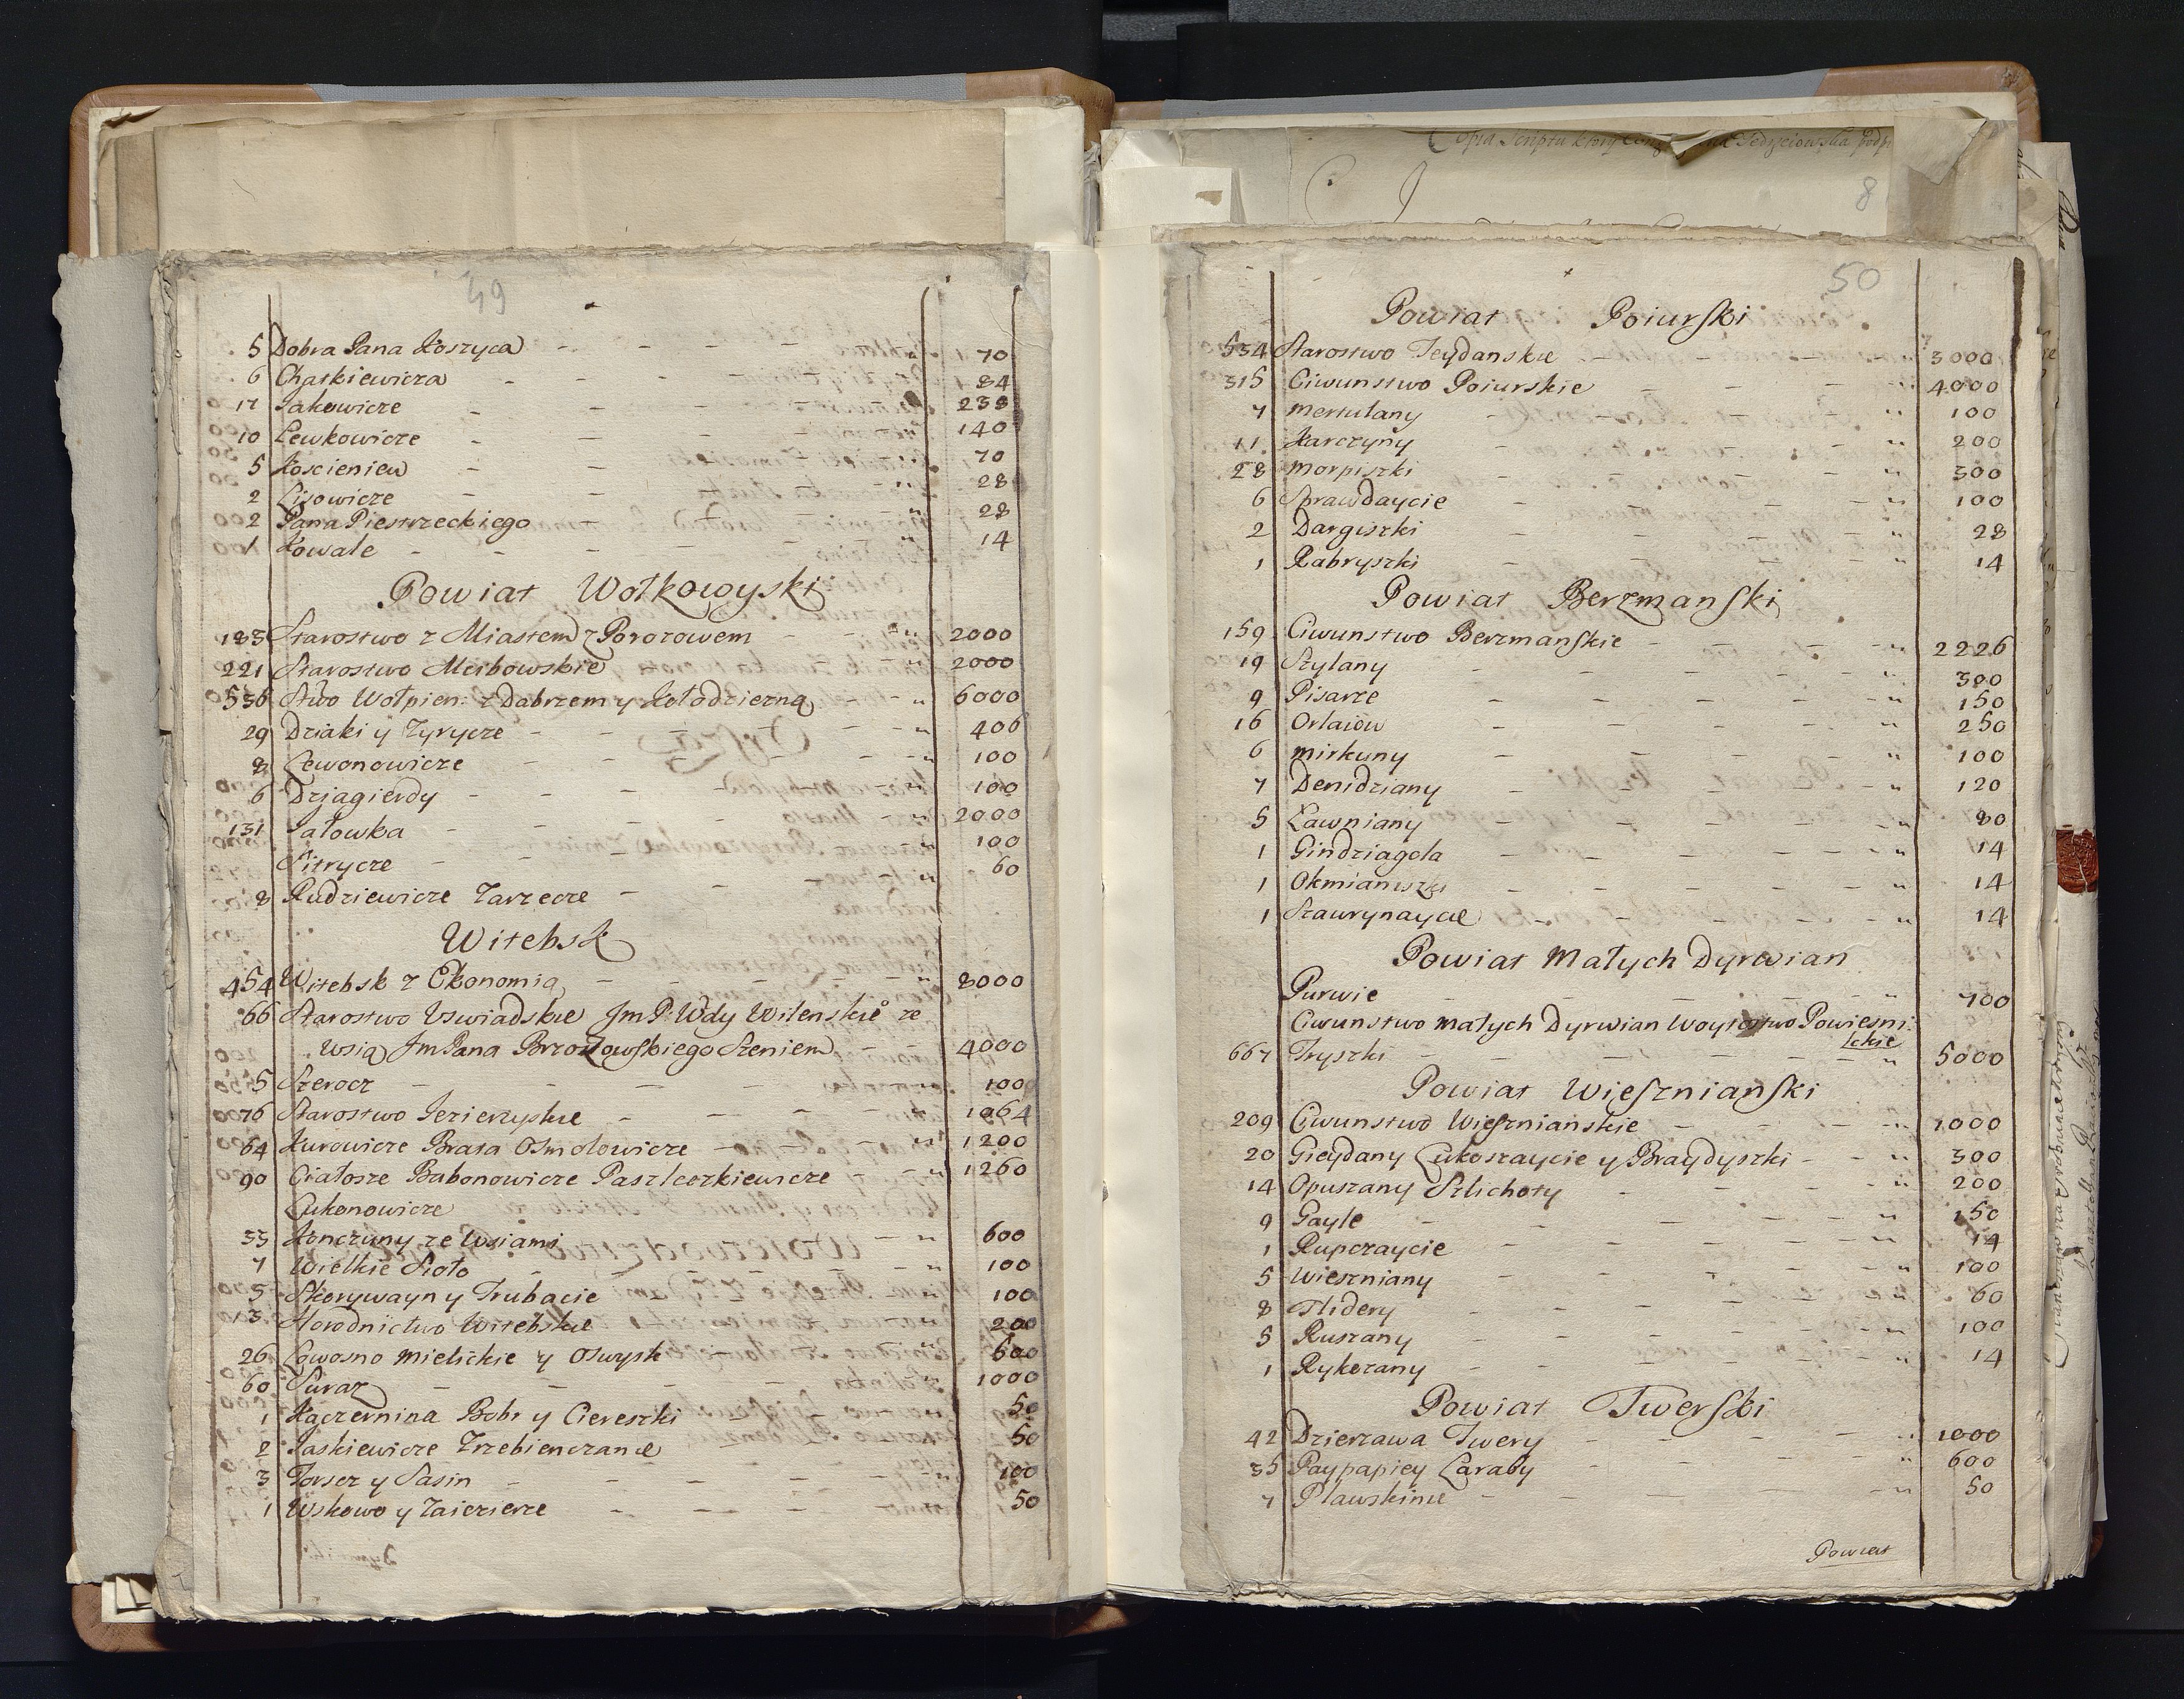 49
5 Dobra Pana Koszyca - - - 70
6 Chatkiewicza - - - 84
17 Jakowicze - - - 238
10 Lewkowicze - - - 140
5 Koscieniew - - 70
2 Lisowicze - - 28
2 Pana Piestrzeckiego - - " 28
1 Kowale - - - " 14
Powiat Wołkowyski
183 Starostwo z Miastem z Porozowem - " 2000
221 Starostwo Mcibowskie - " 2000
536 Stwo Wołpien: z Dabrzem y Kołodzierną - " 6000
29 Dziaki y Zyrycze - - - " 406
8 Lewonowicze - - - " 100
6 Dziagierdy - - - " 100
131 Jałowka - - - " 2000
Pitrycze - - - 100
8 Rudziewicze Zarzecze - - " 60
Witebsk
454 Witebsk z Ekonomią - - " 8000
66 Starostwo Uswiadskie Jm P: Wdy Wilenskie ze
Wsią Jm Pana Brzozowskiego Sieniem - - 4000
5 Szerocz - - - 100
76 Starostwo Jezierzyskie - - - 1064
64 Kurowicze Brata Osmołowicze - - " 1200
90 Ciałosze Babonowicze Paszleczkiewicze - " 1260
Lukonowicze
33 Konczuny ze Wsiami - " 600
7 Wielkie Sioło - - - " 100
5 Skorywayn y Trubacie 100
3 Horodnictwo Witebskie - 200
26 Łowosno Mielickie y Oswysk " 600
60 Suraz - - - 1000
1 Kączernina Bobr y Ciereszki - 50
2 Jaskiewicze Trzebienczanie - 50
3 Torsez y Sasin - - - " 100
1 Wskowo y Zaiezierze - - - 50
Copia Scriptu ktory
8
50
Powiat Poiurski
534 Starostwo Teydanskie - - - 3000
315 Ciwunstwo Poiurskie - - " 4000
7 Mertulany - - - " 100
11 Karczyny - - - " 200
28 Morpiszki - - - " 300
6 Sprawdaycie - - - " 100
2 Dargiszki - - - " 28
1 Rabryszki - - - " 14
Powiat Berzmanski
159 Ciwunstwo Berzmanskie - - " 2226
19 Szylany - - - " 300
9 Pisarze - - - " 150
16 Orlaiow - - - " 250
6 Mirkuny - - - " 100
7 Denidziany - - - " 120
5 Ławniany - - - " 80
1 Gindziagola - - - " 14
1 Okmianiszki - - - " 14
1 Szaurynaycie - - - " 14
Powiat Małych Dyrwian
Purwie - - - " 700
Ciwunstwo Małych Dyrwian Woytostwo Powiesni:
ckie
667 Tryszki - - - " 5000
Powiat Wieszniański
209 Ciwunstwo Wiesznianskie - - " 1000
20 Gieydany Lukoszaycie y Braydyszki - - " 300
14 Opuszany Szlichoty - - - " 200
9 Gayle - - - " 150
1 Rupczaycie - - - " 14
5 Wieszniany - - - " 100
8 Flidery - - - 60
5 Ruszany - - - " 100
1 Rykozany - - - " 14
Powiat Twerski
42 Dzierzawa Twery - - - " 1000
35 Paypapiey Łaraby - - - " 600
7 Plawskinie - - - " 50
Powiat